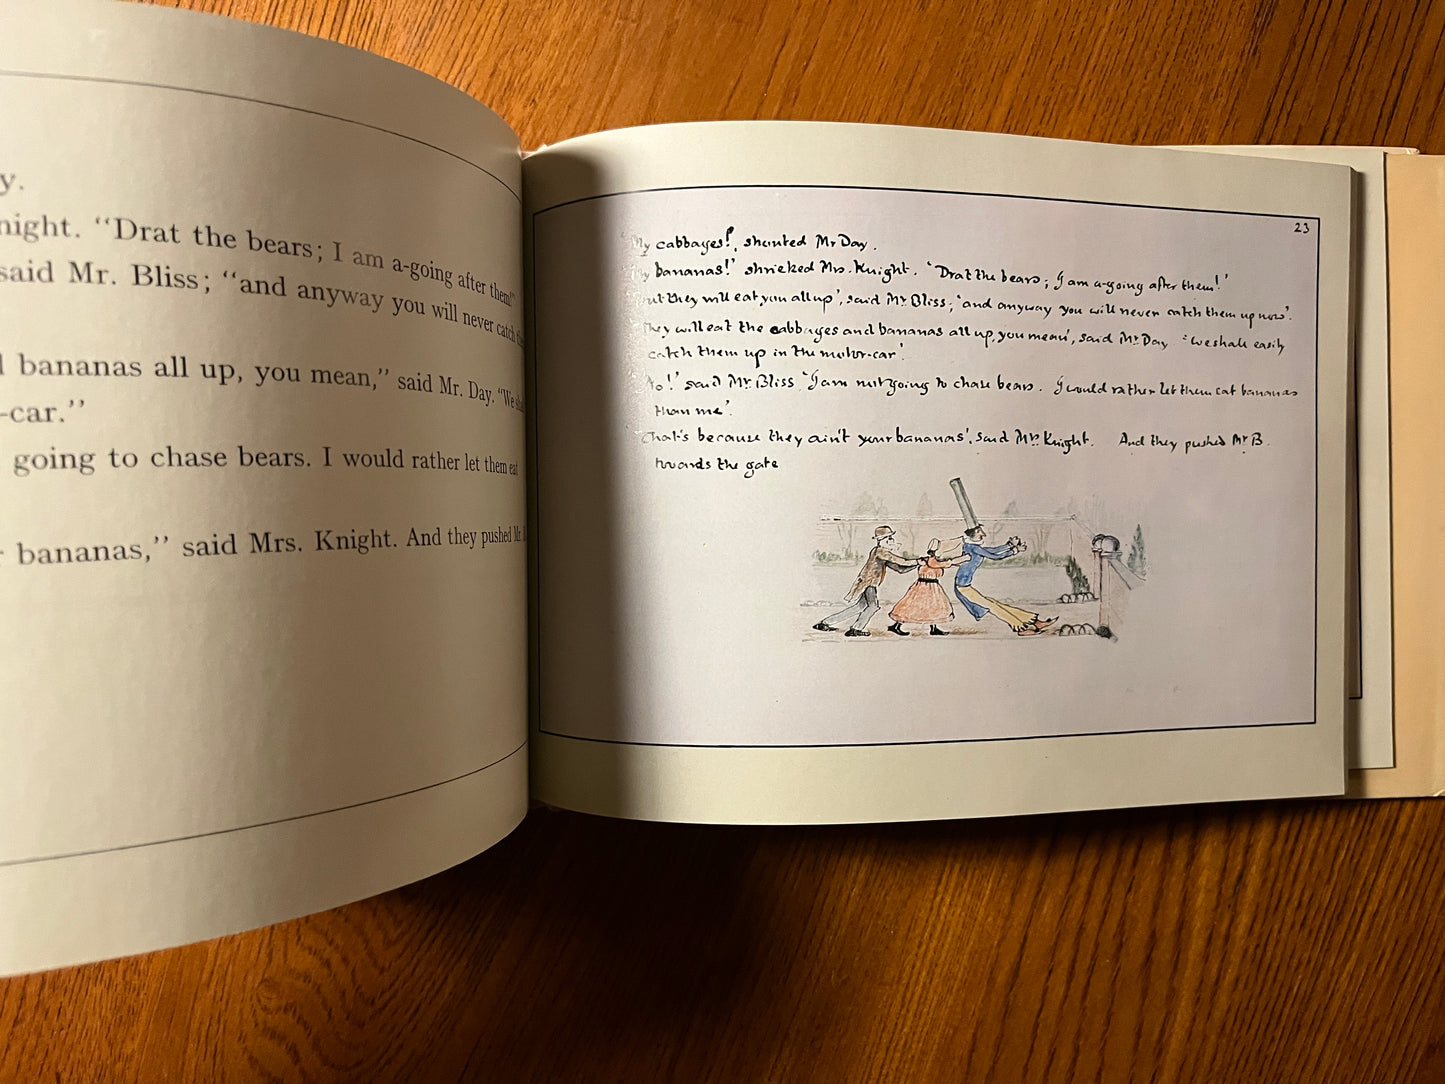 y.
night. “Drat the bears; I am a-going after them!”
said Mr. Bliss; “and anyway you will never catch
bananas all up, you mean,” said Mr. Day. “We
-car.”
going to chase bears. I would rather let them eat
bananas,” said Mrs. Knight. And they pushed Mr.
23
My cabbages!', shouted Mr Day.
bananas!' shrieked Mrs. Knight. 'Drat the bears; I am a-going after them!'
But they will eat you all up', said Mr Bliss; 'and anyway you will never catch them up now'.
They will eat the cabbages and bananas all up, you mean', said Mr Day 'we shall easily
catch them up in the motor-car'.
No!' said Mr Bliss 'I am not going to chase bears. I would rather let them eat bananas
than me'.
That's because they ain't your bananas', said Mrs Knight. And they pushed Mr B.
towards the gate